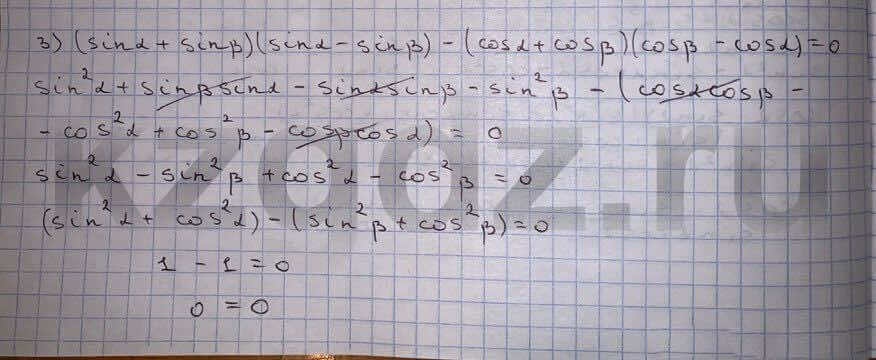 3) (sinα + sinβ)(sinα - sinβ) - (cosα + cosβ)(cosβ - cosα) = 0
sin²α + sinβ sinα - sinα sinβ - sin²β - (cosα cosβ -
- cos²α + cos²β - cosβ cosα) = 0
sin²α - sin²β + cos²α - cos²β = 0
(sin²α + cos²α) - (sin²β + cos²β) = 0
1 - 1 = 0
0 = 0
kzgdz.ru